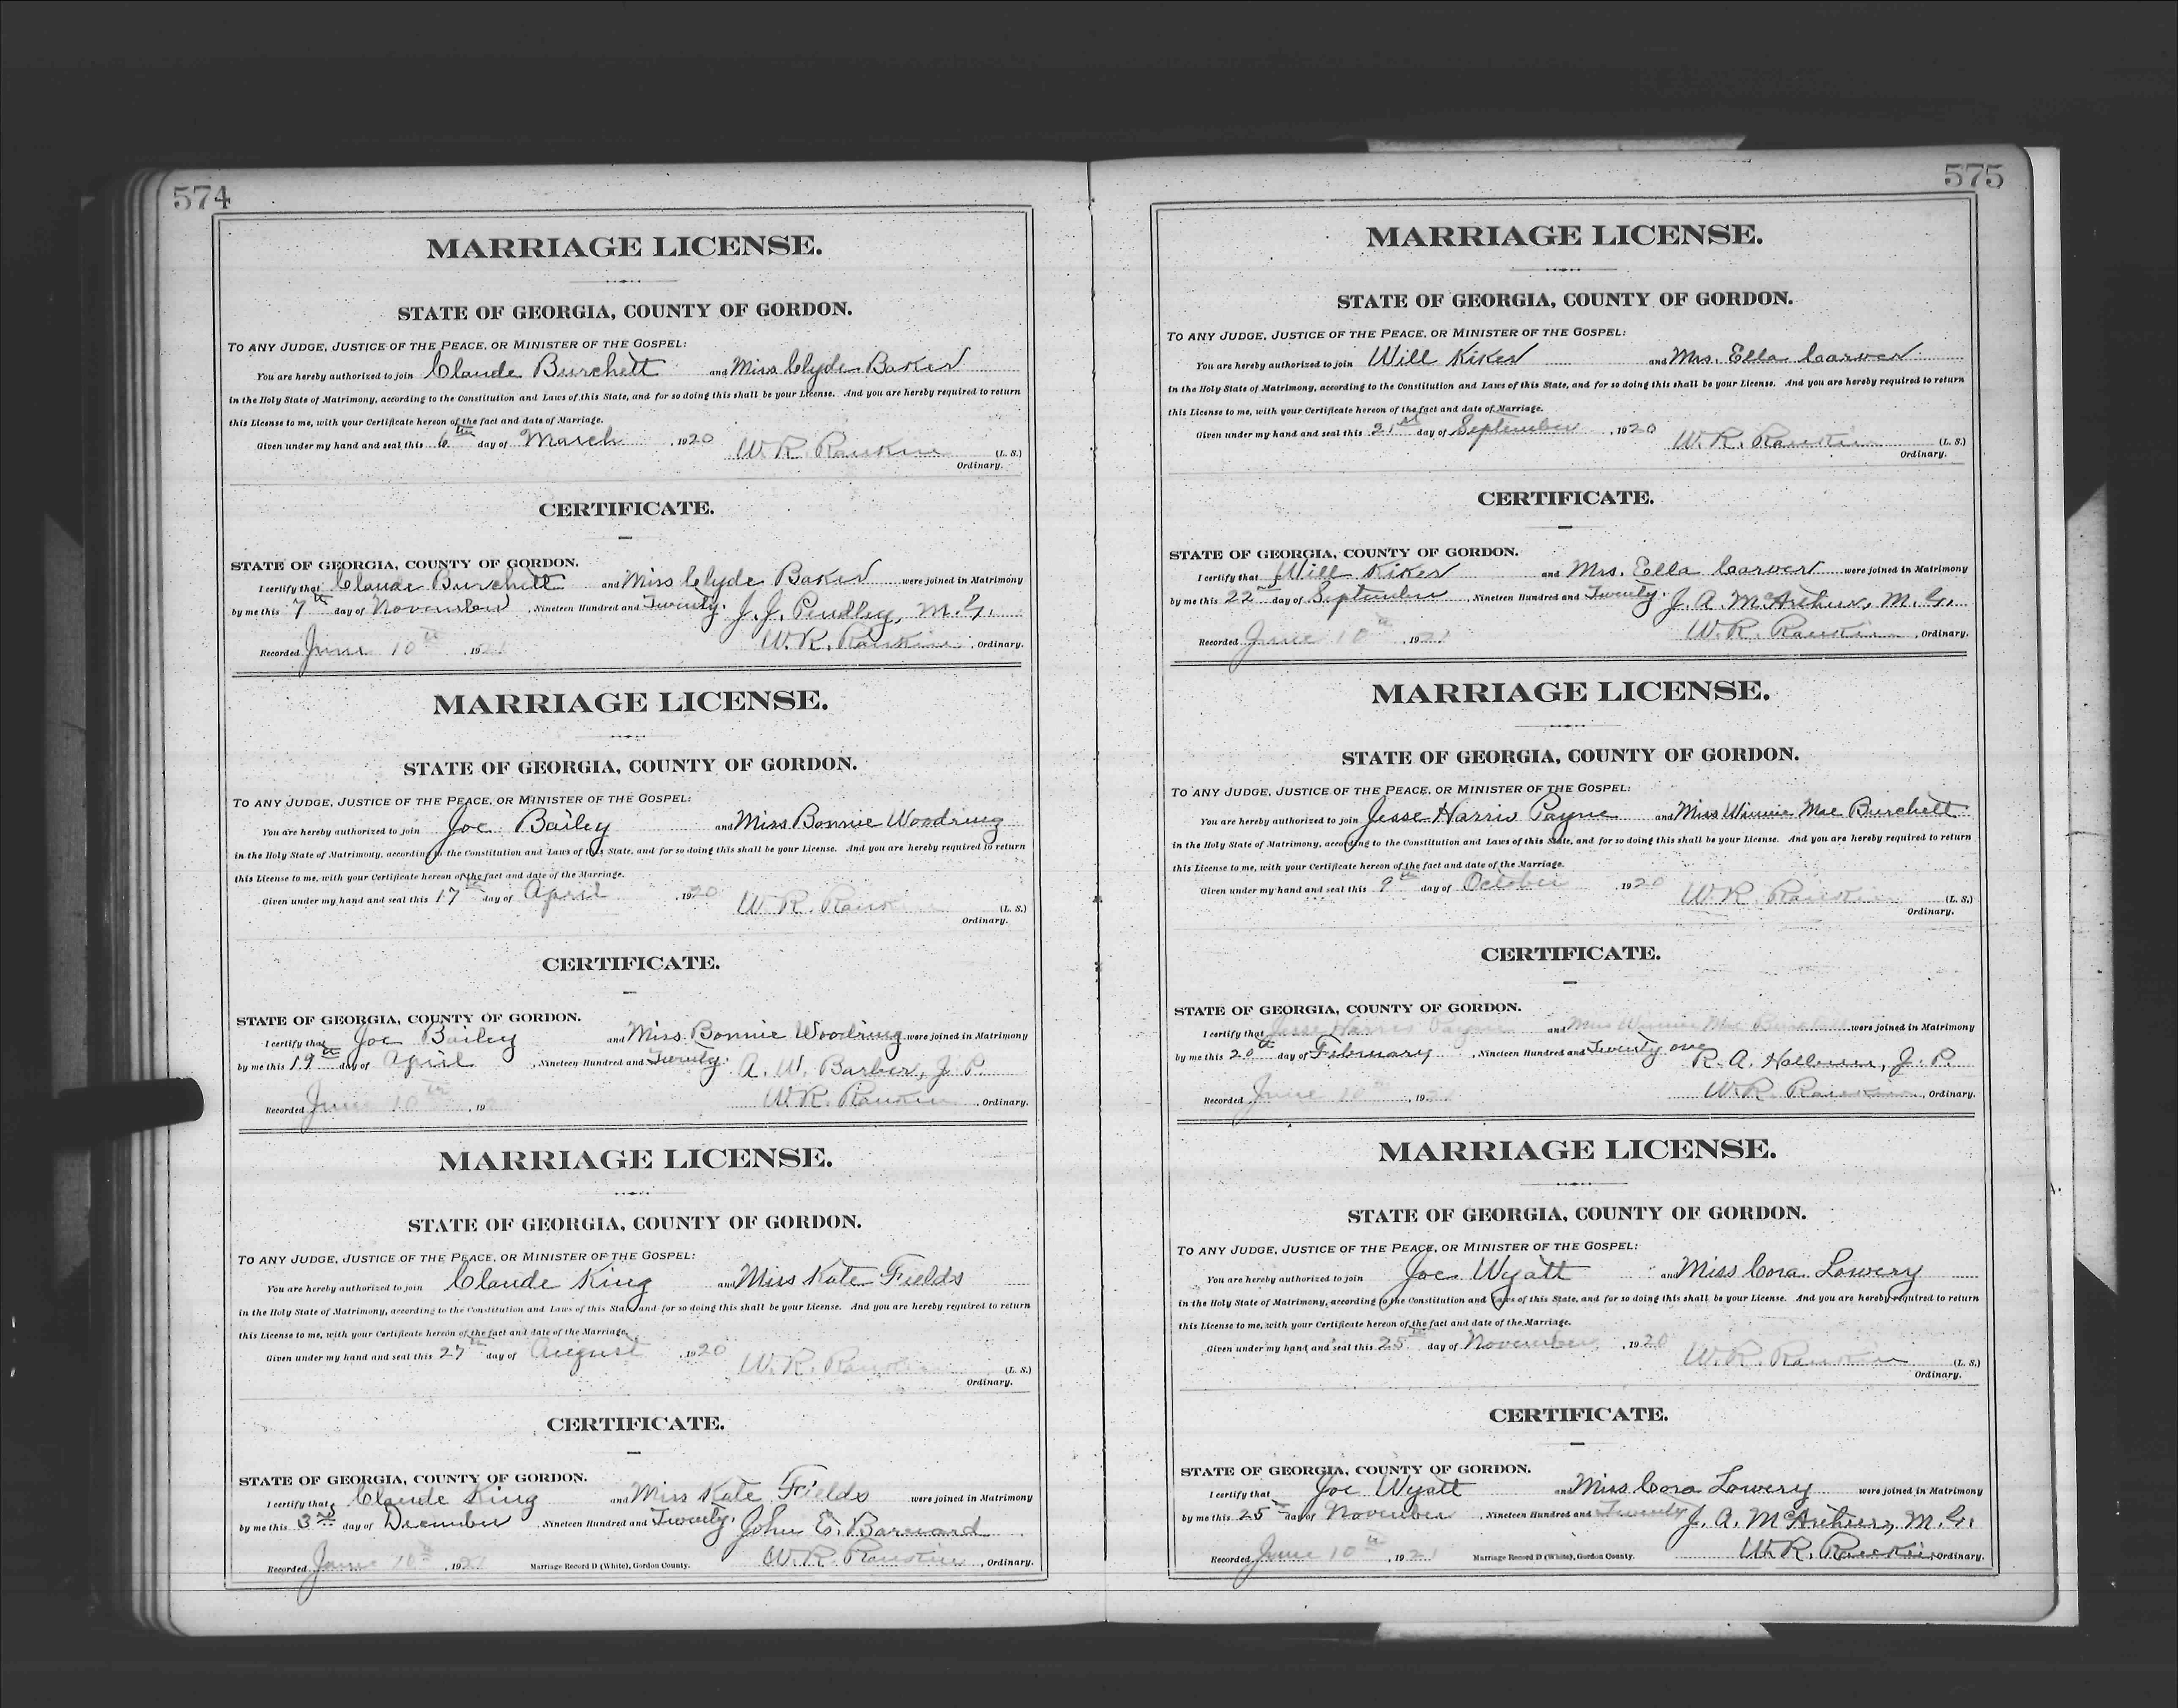 574
MARRIAGE LICENSE.
STATE OF GEORGIA, COUNTY OF GORDON.
TO ANY JUDGE, JUSTICE OF THE PEACE, OR MINISTER OF THE GOSPEL:
You are hereby authorized to join Claude Burchett and Miss Clyde Baker
in the Holy State of Matrimony, according to the Constitution and Laws of this State, and for so doing this shall be your License. And you are hereby required to return
this License to me, with your Certificate hereon of the fact and date of Marriage.
Given under my hand and seal this 6th day of March , 1920 W. R. Rankin (L. S.)
Ordinary.
CERTIFICATE.
STATE OF GEORGIA, COUNTY OF GORDON.
I certify that Claude Burchett and Miss Clyde Baker were joined in Matrimony
by me this 7th day of November , Nineteen Hundred and Twenty. J. J. Pendley, M. G.
Recorded June 10th , 19 W. R. Rankin , Ordinary.
MARRIAGE LICENSE.
STATE OF GEORGIA, COUNTY OF GORDON.
TO ANY JUDGE, JUSTICE OF THE PEACE, OR MINISTER OF THE GOSPEL:
You are hereby authorized to join Joe Bailey and Miss Bonnie Woodring
in the Holy State of Matrimony, according to the Constitution and Laws of this State, and for so doing this shall be your License. And you are hereby required to return
this License to me, with your Certificate hereon of the fact and date of the Marriage.
Given under my hand and seal this 17th day of April , 1920 W. R. Rankin (L. S.)
Ordinary.
CERTIFICATE.
STATE OF GEORGIA, COUNTY OF GORDON.
I certify that Joe Bailey and Miss Bonnie Woodring were joined in Matrimony
by me this 19th day of April , Nineteen Hundred and Twenty. A. W. Barber, J. P.
Recorded June 10th , 19 W. R. Rankin , Ordinary.
MARRIAGE LICENSE.
STATE OF GEORGIA, COUNTY OF GORDON.
TO ANY JUDGE, JUSTICE OF THE PEACE, OR MINISTER OF THE GOSPEL:
You are hereby authorized to join Claude King and Miss Kate Fields
in the Holy State of Matrimony, according to the Constitution and Laws of this State, and for so doing this shall be your License. And you are hereby required to return
this License to me, with your Certificate hereon of the fact and date of the Marriage.
Given under my hand and seal this 27th day of August , 1920 W. R. Rankin (L. S.)
Ordinary.
CERTIFICATE.
STATE OF GEORGIA, COUNTY OF GORDON.
I certify that Claude King and Miss Kate Fields were joined in Matrimony
by me this 3rd day of December , Nineteen Hundred and Twenty. John E. Barnard
Recorded June 10th , 1921 Marriage Record D (White), Gordon County. W. R. Rankin , Ordinary.
575
MARRIAGE LICENSE.
STATE OF GEORGIA, COUNTY OF GORDON.
TO ANY JUDGE, JUSTICE OF THE PEACE, OR MINISTER OF THE GOSPEL:
You are hereby authorized to join Will Kiker and Mrs. Ella Carver
in the Holy State of Matrimony, according to the Constitution and Laws of this State, and for so doing this shall be your License. And you are hereby required to return
this License to me, with your Certificate hereon of the fact and date of Marriage.
Given under my hand and seal this 21st day of September , 1920 W. R. Rankin (L. S.)
Ordinary.
CERTIFICATE.
STATE OF GEORGIA, COUNTY OF GORDON.
I certify that Will Kiker and Mrs. Ella Carver were joined in Matrimony
by me this 22nd day of September , Nineteen Hundred and Twenty. J. A. McArthur, M. G.
Recorded June 10th , 1921 W. R. Rankin , Ordinary.
MARRIAGE LICENSE.
STATE OF GEORGIA, COUNTY OF GORDON.
TO ANY JUDGE, JUSTICE OF THE PEACE, OR MINISTER OF THE GOSPEL:
You are hereby authorized to join Jesse Harris Payne and Miss Winnie Mae Burchett
in the Holy State of Matrimony, according to the Constitution and Laws of this State, and for so doing this shall be your License. And you are hereby required to return
this License to me, with your Certificate hereon of the fact and date of the Marriage.
Given under my hand and seal this 9th day of October , 1920 W. R. Rankin (L. S.)
Ordinary.
CERTIFICATE.
STATE OF GEORGIA, COUNTY OF GORDON.
I certify that Jesse Harris Payne and Miss Winnie Mae Burchett were joined in Matrimony
by me this 20th day of February , Nineteen Hundred and Twenty one R. A. J. P.
Recorded June 10th , 1921 W. R. Rankin , Ordinary.
MARRIAGE LICENSE.
STATE OF GEORGIA, COUNTY OF GORDON.
TO ANY JUDGE, JUSTICE OF THE PEACE, OR MINISTER OF THE GOSPEL:
You are hereby authorized to join Joe Wyatt and Miss Cora Lowery
in the Holy State of Matrimony, according to the Constitution and Laws of this State, and for so doing this shall be your License. And you are hereby required to return
this License to me, with your Certificate hereon of the fact and date of the Marriage.
Given under my hand and seal this 25th day of November , 1920 W. R. Rankin (L. S.)
Ordinary.
CERTIFICATE.
STATE OF GEORGIA, COUNTY OF GORDON.
I certify that Joe Wyatt and Miss Cora Lowery were joined in Matrimony
by me this 25th day of November , Nineteen Hundred and Twenty J. A. McArthur, M. G.
Recorded June 10th , 1921 Marriage Record D (White), Gordon County. W. R. Rankin , Ordinary.